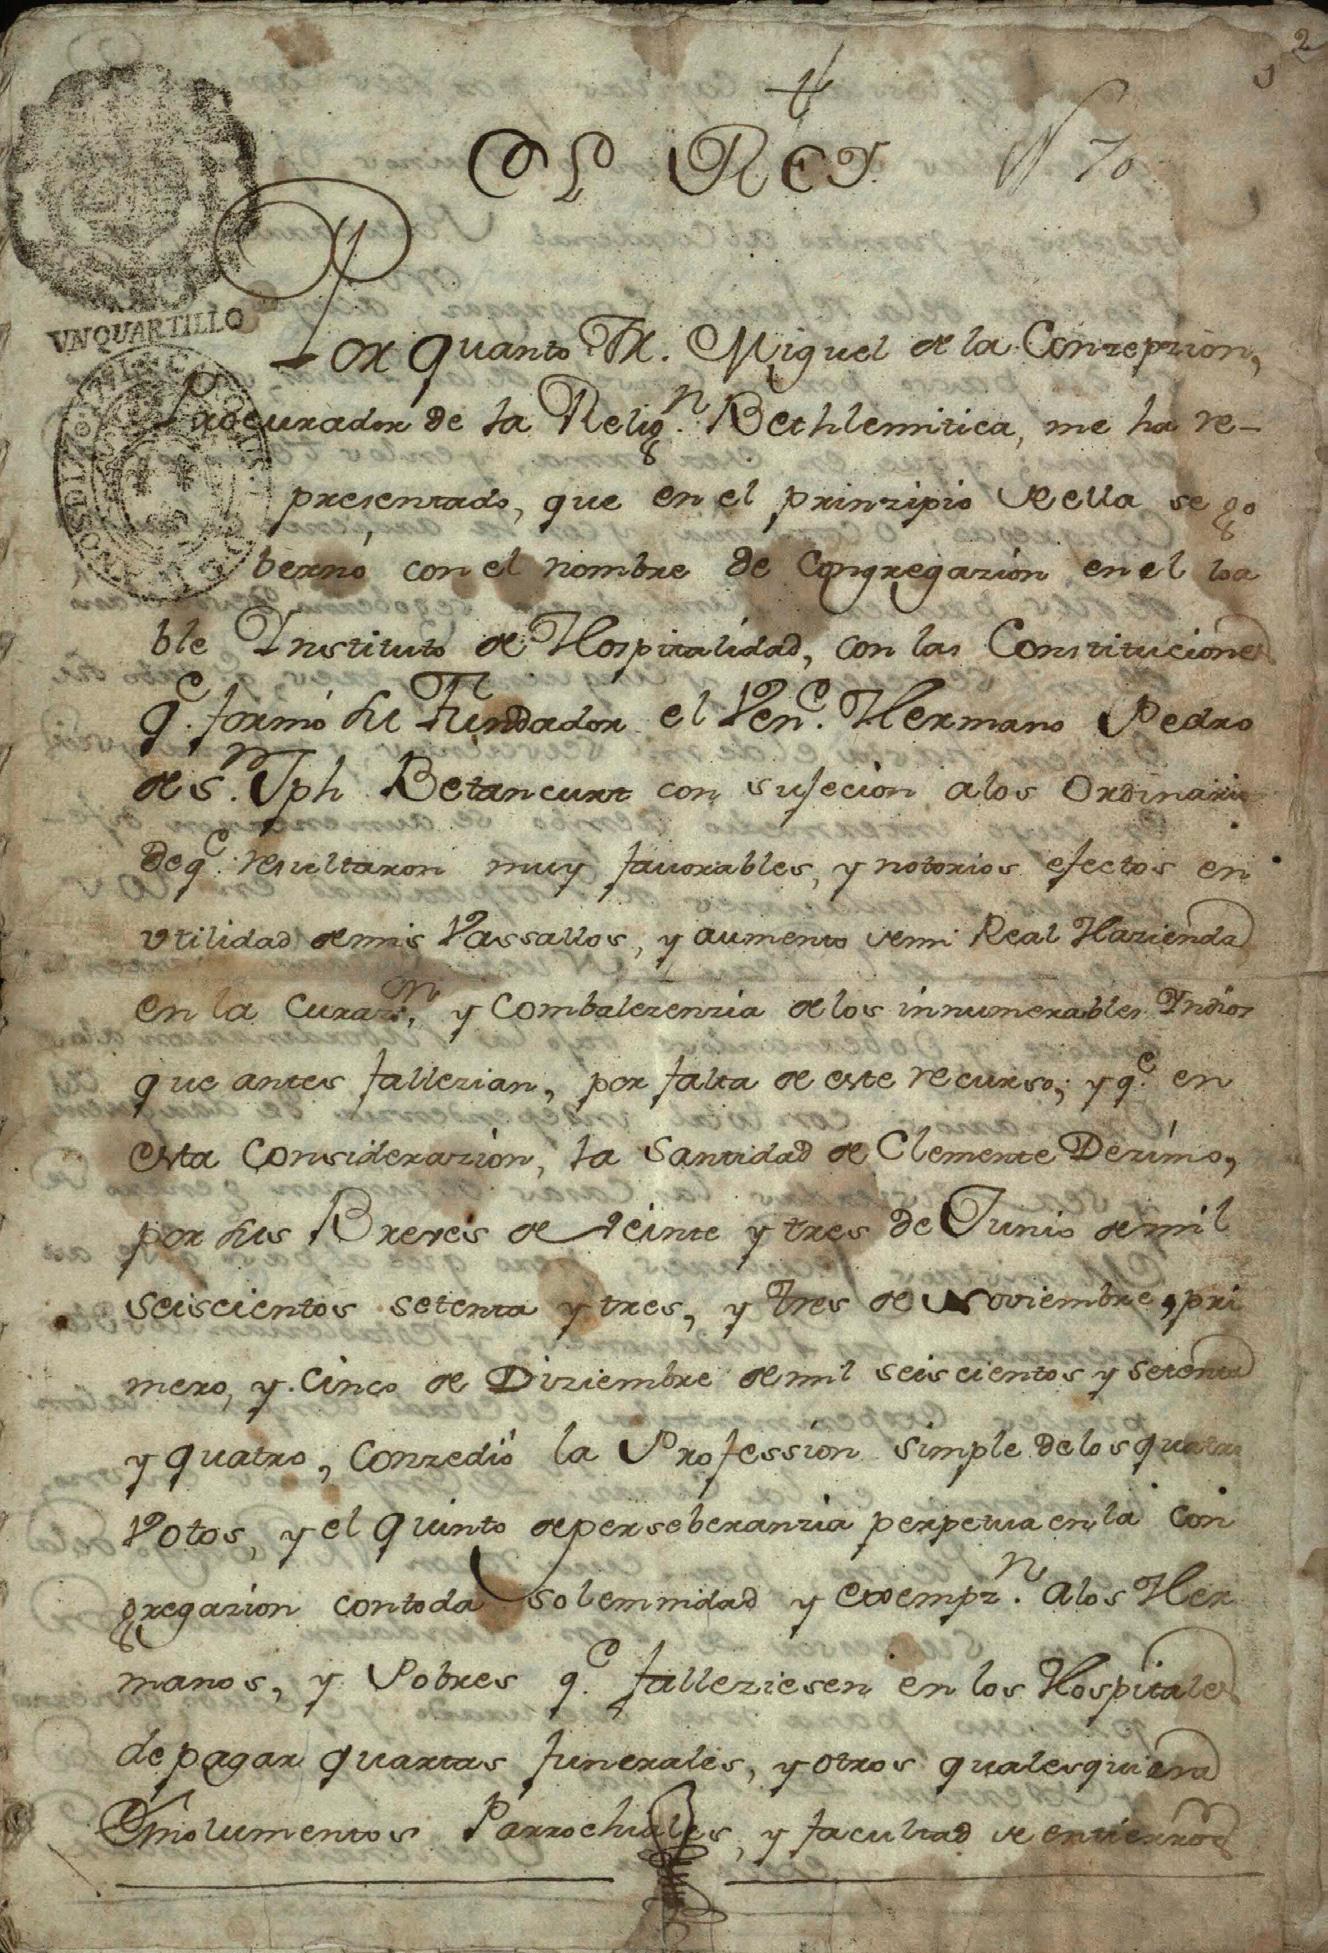 2
El Rey
N 70
VNQUARTILLO
Por Quanto Fr. Miguel de la Conzepzion,
Procurador de la Relig.n Bethlemitica, me ha re-
presentado, que en el prinzipio de ella se go
bernó con el nombre de Congregazion en el loa
ble Instituto de Hospitalidad, con las Constituciones
q.e formó su Fundador el Ven.e Hermano Pedro
de S.n Jph Betancurt con sujecion a los Ordinarios
de q.e resultaron muy favorables, y notorios efectos en
vtilidad de mis Vassallos, y aumento de mi Real Hazienda
en la Curaz.n, y Combalezenzia de los innumerables Indios
que antes fallezian, por falta de este recurso; y q.e en
esta Considerazion, la Santidad de Clemente Dezimo,
por sus Breves de veinte y tres de Junio de mil
seiscientos setenta y tres, y tres de Noviembre, pri
mero, y Cinco de Diziembre de mil seiscientos y setenta
y quatro, Conzedió la Profession simple de los quatro
Votos, y el Quinto de perseberanzia perpetua en la Con
gregazion con toda solemnidad y exempz.n a los Her
manos, y Pobres q.e falleziesen en los Hospitales
de pagar quartas funerales, y otros qualesquiera
Emolumentos Parrochiales, y facultad de entierros